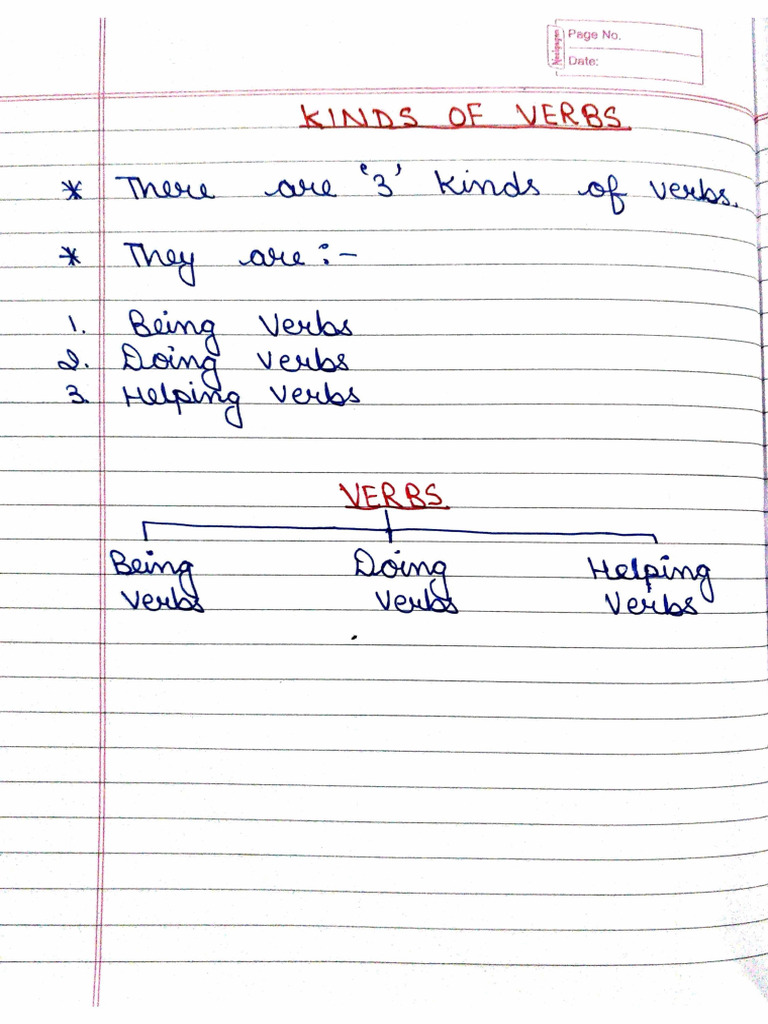 Page No.
Date:
KINDS OF VERBS
* There are '3' kinds of verbs.
* They are :-
1. Being Verbs
2. Doing verbs
3. Helping verbs
VERBS
Being Doing Helping
Verbs Verbs Verbs